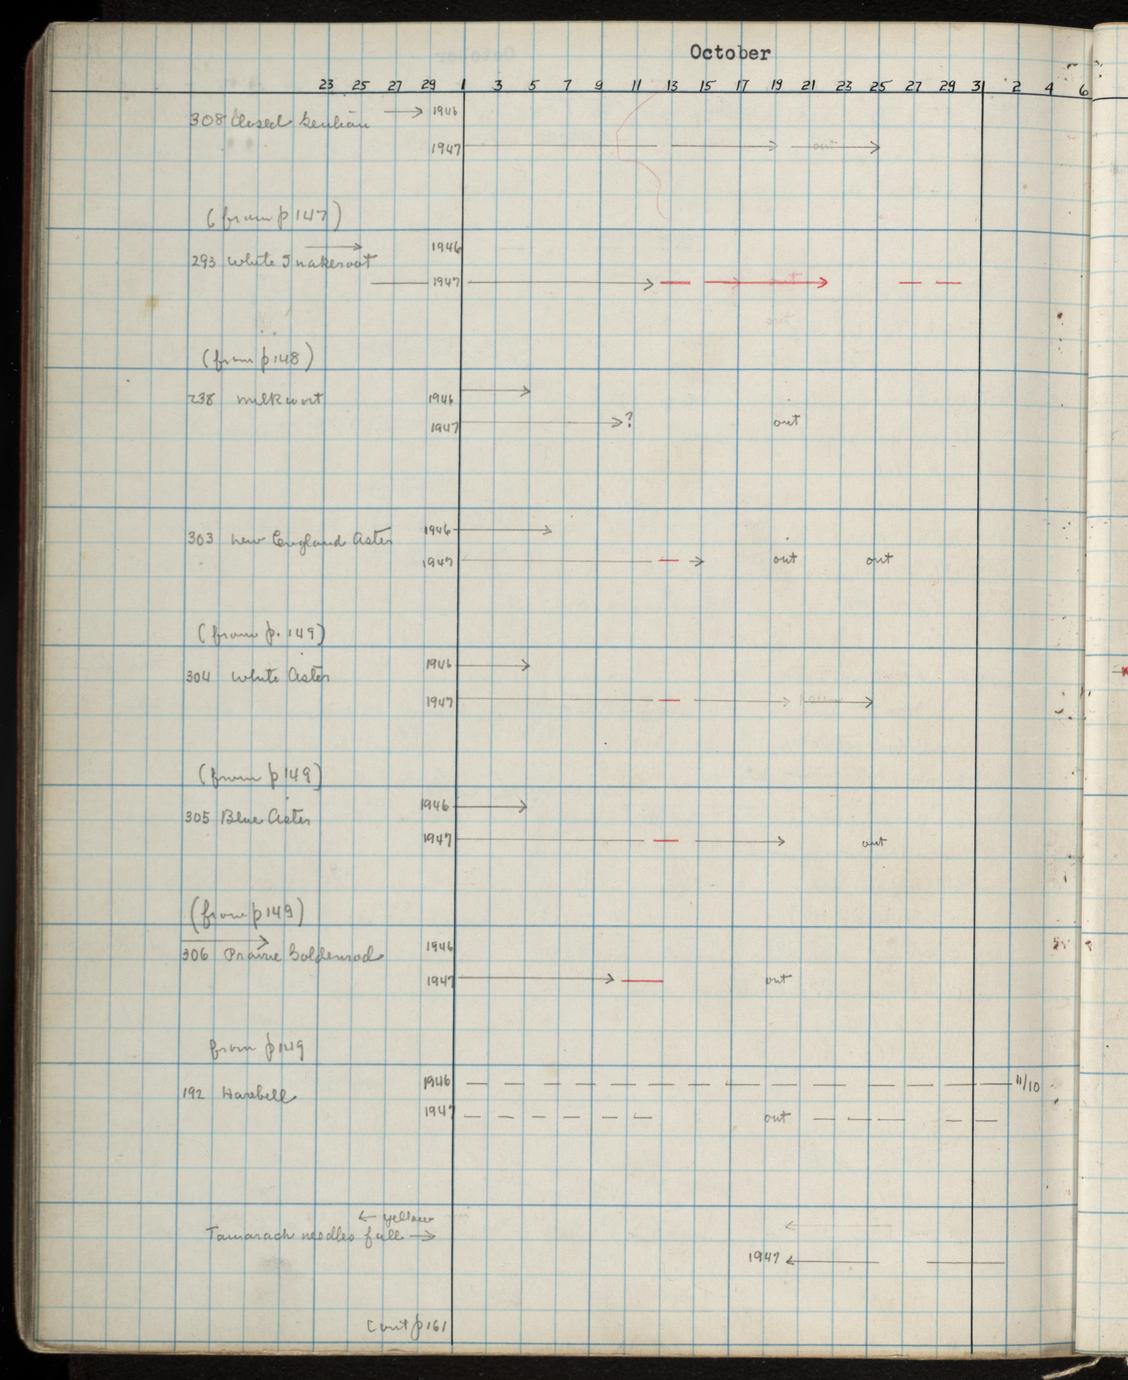 October
23 25 27 29 1 3 5 7 9 11 13 15 17 19 21 23 25 27 29 31 2 4 6
308 Closed Gentian → 1946
1947 out
(from p 147)
293 White Snakeroot 1946
1947 out
out
(from p 148)
238 milkwort 1946
1947 ? out
303 New England Aster 1946
1947 out out
(from p. 149)
304 White Aster 1946
1947
(from p 149)
305 Blue Aster 1946
1947 out
(from p 149)
306 Prairie Goldenrod 1946
1947 out
from p 149
192 Harebell 1946 11/10
1947 out
← yellow
Tamarack needles fall →
1947
Cont p 161